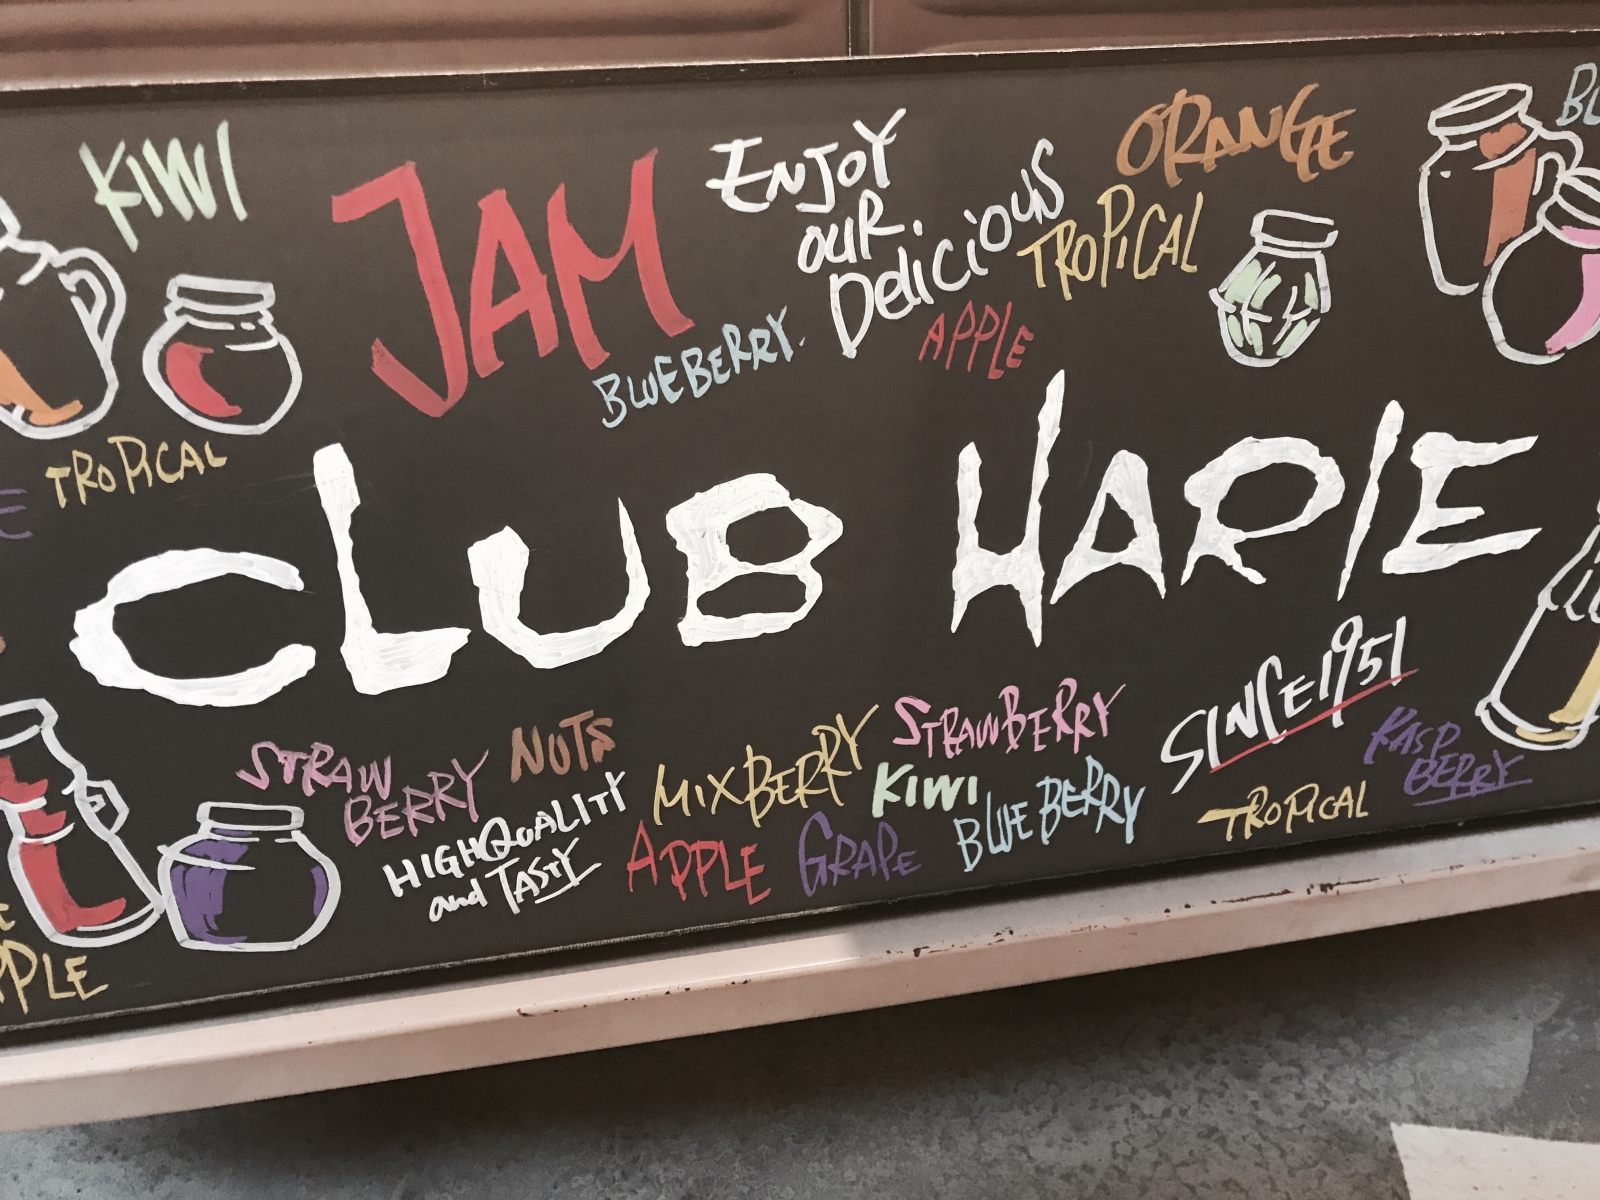 KIWI
JAM
ENJOY
OUR.
DELICIOUS
ORANGE
TROPICAL
BLUEBERRY.
APPLE
TROPICAL
CLUB HARIE
SINCE 1951
STRAW
BERRY
NUTS
HIGH QUALITY
and TASTY
MIXBERRY
STRAWBERRY
KIWI
APPLE
GRAPE
BLUEBERRY
TROPICAL
RASP
BERRY